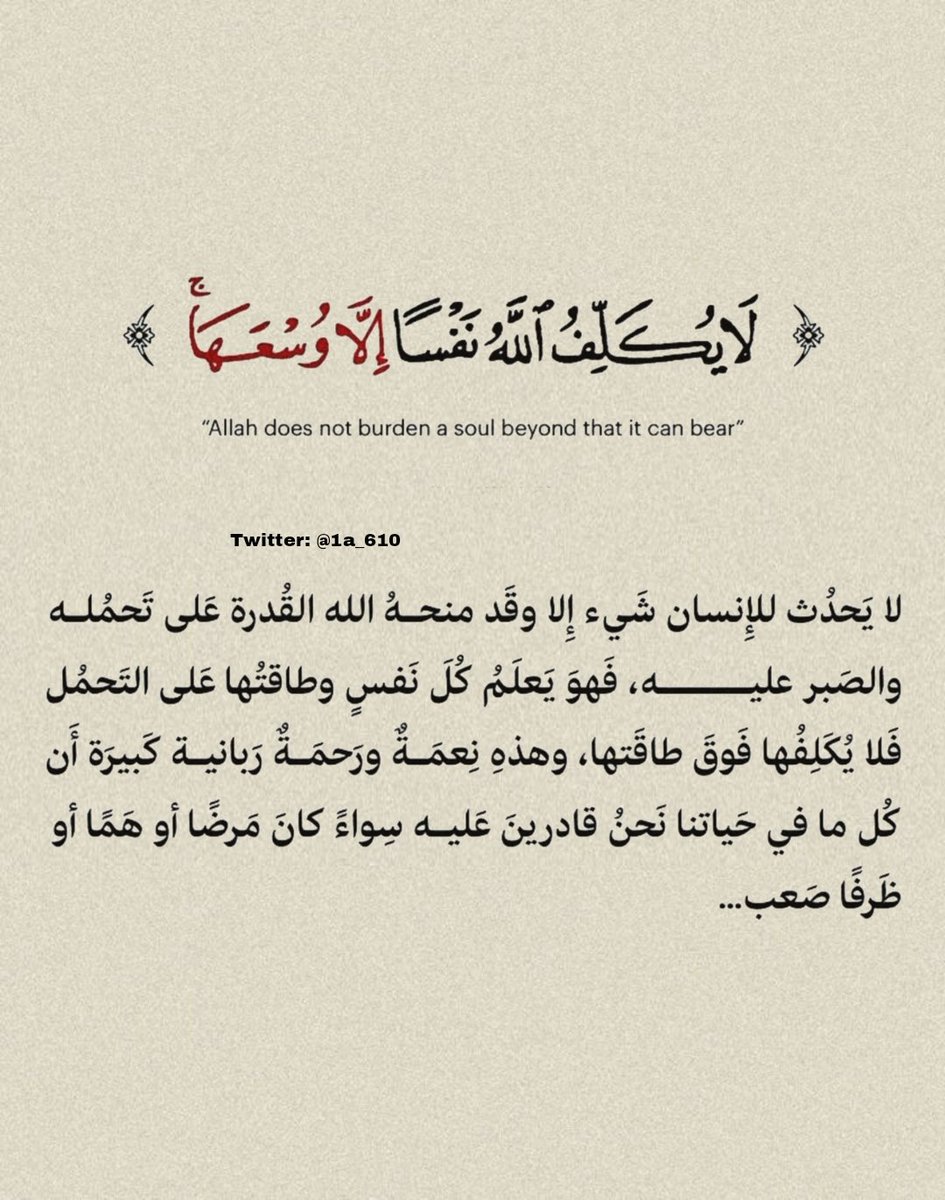 ﴿ لَا يُكَلِّفُ ٱللَّهُ نَفْسًا إِلَّا وُسْعَهَا ۚ ﴾
“Allah does not burden a soul beyond that it can bear”
Twitter: @1a_610
لا يَحدُث للإِنسان شَيء إِلا وقَد منحـهُ الله القُدرة عَلى تَحمُلـه
والصَبر عليـــــــه، فَهوَ يَعلَمُ كُلَ نَفسٍ وطاقتُها عَلى التَحمُل
فَلا يُكَلِفُها فَوقَ طاقَتها، وهذهِ نِعمَـةٌ ورَحمَـةٌ رَبانيـة كَبيرَة أَن
كُل ما في حَياتنا نَحنُ قادرينَ عَليـه سِواءً كانَ مَرضًا أو هَمًا أو
ظَرفًا صَعب...